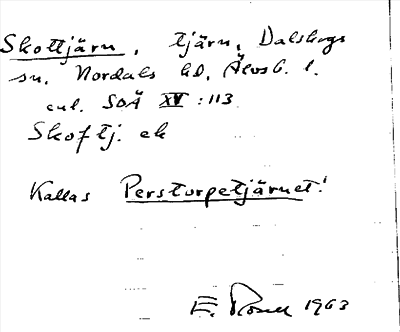 Skottjärn, tjärn, Dalskogs
sn. Nordals hd, Älvsb. l.
enl. SOÄ XV :113
Skoftj. ek
Kallas Perstorpetjärnet!
E. Rosell 1963